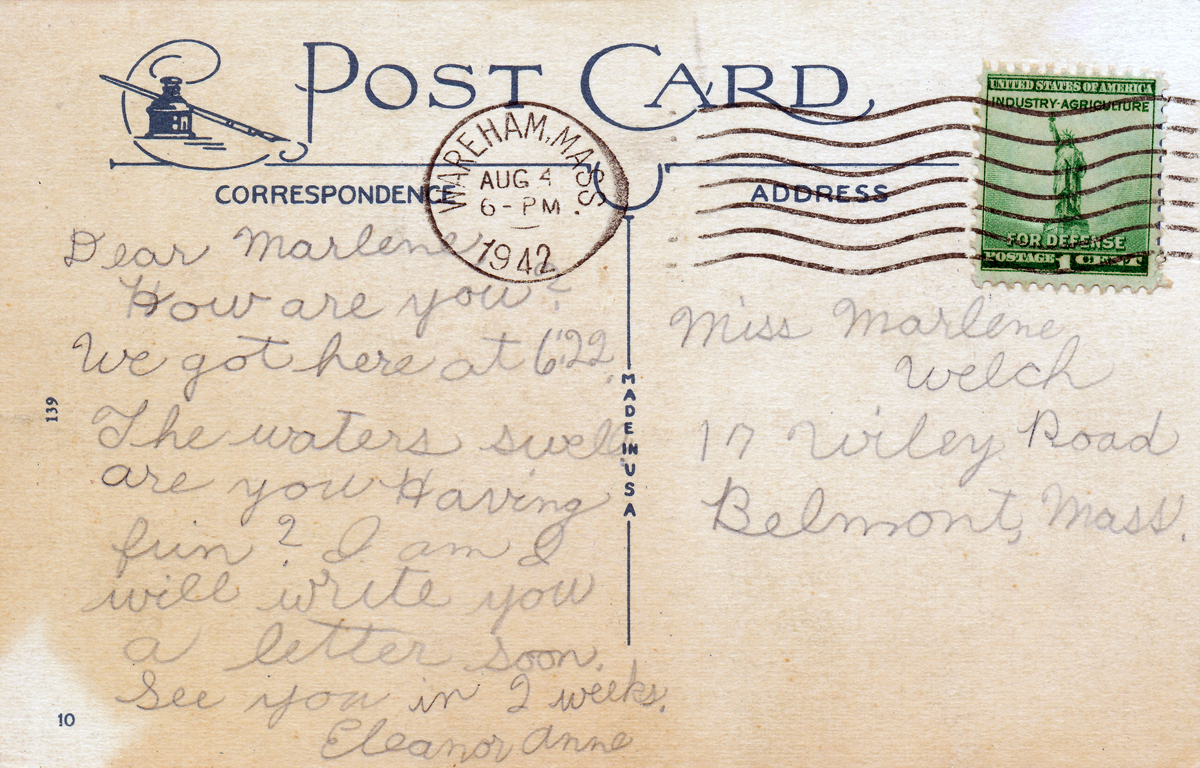 POST CARD
CORRESPONDENCE
ADDRESS
WAREHAM, MASS.
AUG 4
6-PM
1942
UNITED STATES OF AMERICA
INDUSTRY-AGRICULTURE
FOR DEFENSE
POSTAGE 1 CENT
Dear Marlene,
How are you?
We got here at 6:22.
The waters swell
are you Having
fun? I am I
will write you
a letter soon.
See you in 2 weeks.
Eleanor Anne
139
10
MADE IN USA
Miss Marlene
Welch
17 Wiley Road
Belmont, Mass.